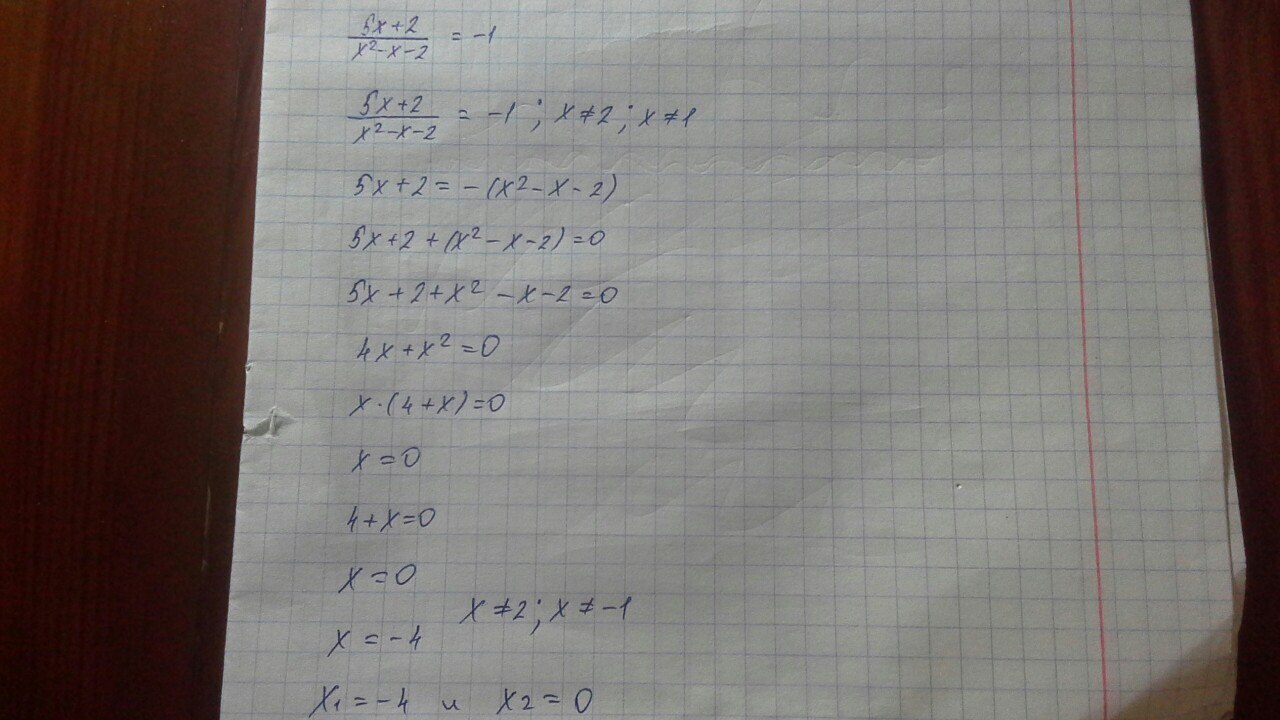 (5x+2)/(x²-x-2) = -1
(5x+2)/(x²-x-2) = -1 ; x≠2 ; x≠1
5x+2=-(x²-x-2)
5x+2+(x²-x-2)=0
5x+2+x²-x-2=0
4x+x²=0
x·(4+x)=0
x=0
4+x=0
x=0
x≠2; x≠-1
x=-4
x₁=-4 и x₂=0